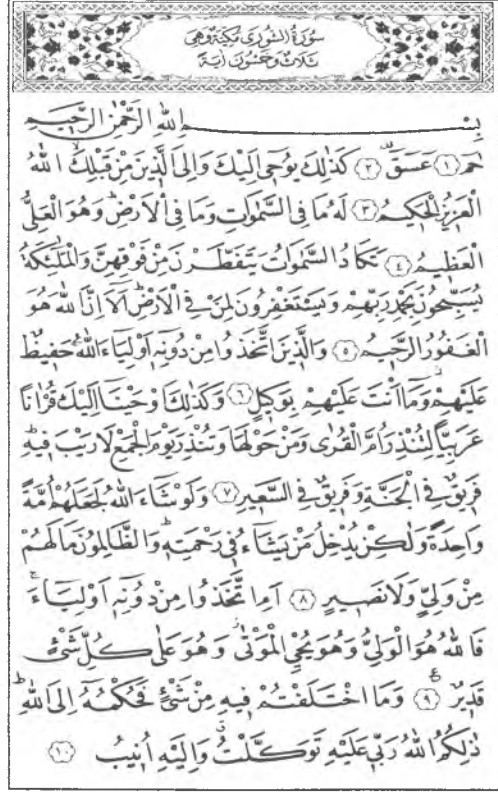 سُورَةُ الشُّورٰى مَكِّيَّةٌ وَهِيَ
ثَلَاثٌ وَخَمْسُونَ اٰيَةً
بِسْمِ اللّٰهِ الرَّحْمٰنِ الرَّحِيمِ
حٰمٓ ﴿١﴾ عٓسٓقٓ ﴿٢﴾ كَذٰلِكَ يُوحٖٓى اِلَيْكَ وَاِلَى الَّذٖينَ مِنْ قَبْلِكَۙ اللّٰهُ
الْعَزٖيزُ الْحَكٖيمُ ﴿٣﴾ لَهُ مَا فِي السَّمٰوَاتِ وَمَا فِي الْاَرْضِۜ وَهُوَ الْعَلِيُّ
الْعَظٖيمُ ﴿٤﴾ تَكَادُ السَّمٰوَاتُ يَتَفَطَّرْنَ مِنْ فَوْقِهِنَّ وَالْمَلٰٓئِكَةُ
يُسَبِّحُونَ بِحَمْدِ رَبِّهِمْ وَيَسْتَغْفِرُونَ لِمَنْ فِي الْاَرْضِۜ اَلَٓا اِنَّ اللّٰهَ هُوَ
الْغَفُورُ الرَّحٖيمُ ﴿٥﴾ وَالَّذٖينَ اتَّخَذُوا مِنْ دُونِهٖٓ اَوْلِيَٓاءَ اللّٰهُ حَفٖيظٌ
عَلَيْهِمْۘ وَمَٓا اَنْتَ عَلَيْهِمْ بِوَكٖيلٍ ﴿٦﴾ وَكَذٰلِكَ اَوْحَيْنَٓا اِلَيْكَ قُرْاٰنًا
عَرَبِيًّا لِتُنْذِرَ اُمَّ الْقُرٰى وَمَنْ حَوْلَهَا وَتُنْذِرَ يَوْمَ الْجَمْعِ لَا رَيْبَ فٖيهِۜ
فَرٖيقٌ فِي الْجَنَّةِ وَفَرٖيقٌ فِي السَّعٖيرِ ﴿٧﴾ وَلَوْ شَٓاءَ اللّٰهُ لَجَعَلَهُمْ اُمَّةً
وَاحِدَةً وَلٰكِنْ يُدْخِلُ مَنْ يَشَٓاءُ فٖي رَحْمَتِهٖۜ وَالظَّالِمُونَ مَا لَهُمْ
مِنْ وَلِيٍّ وَلَا نَصٖيرٍ ﴿٨﴾ اَمِ اتَّخَذُوا مِنْ دُونِهٖٓ اَوْلِيَٓاءَۚ
فَاللّٰهُ هُوَ الْوَلِيُّ وَهُوَ يُحْيِ الْمَوْتٰىۘ وَهُوَ عَلٰى كُلِّ شَيْءٍ
قَدٖيرٌ ﴿٩﴾ وَمَا اخْتَلَفْتُمْ فٖيهِ مِنْ شَيْءٍ فَحُكْمُهُٓ اِلَى اللّٰهِۜ
ذٰلِكُمُ اللّٰهُ رَبّٖي عَلَيْهِ تَوَكَّلْتُۗ وَاِلَيْهِ اُنٖيبُ ﴿١٠﴾